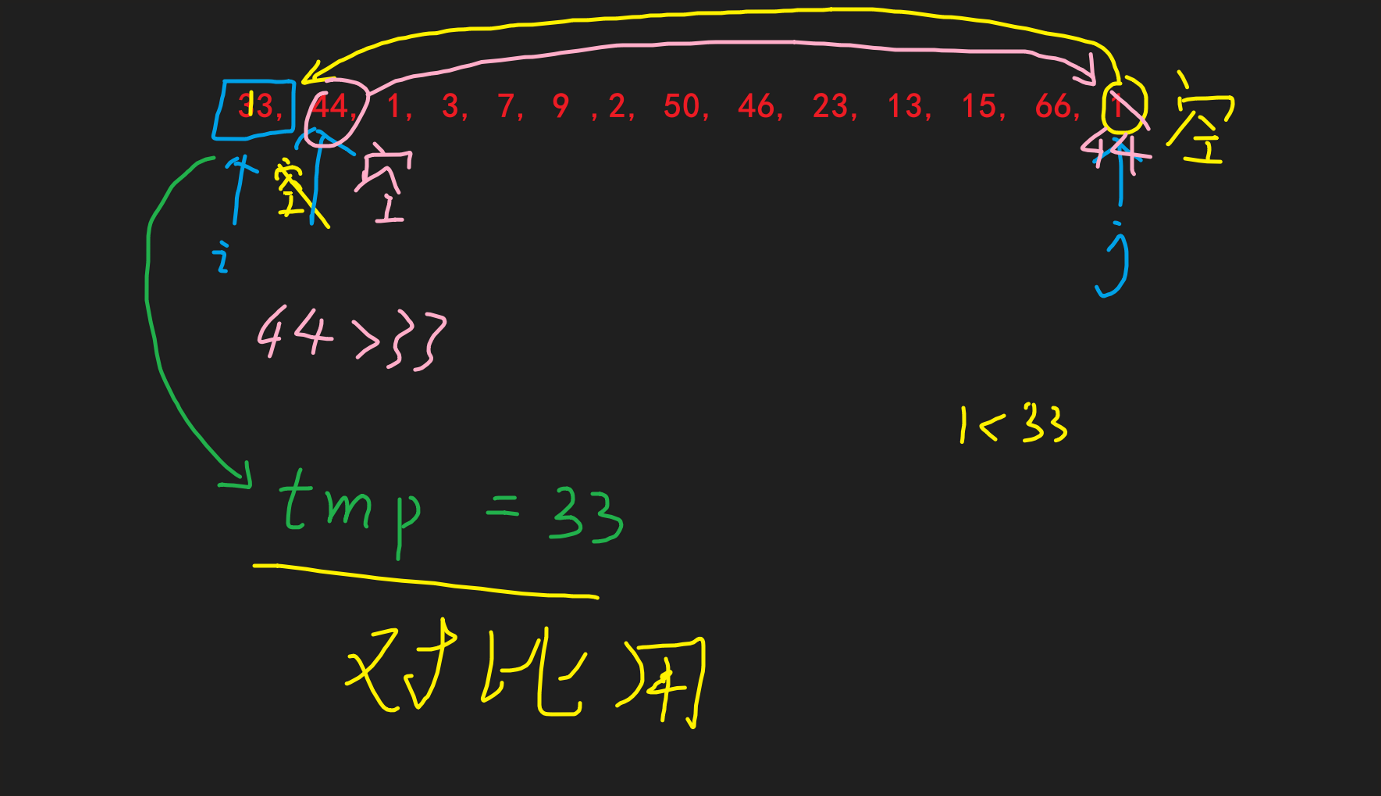 33, 44, 1, 3, 7, 9 ,2, 50, 46, 23, 13, 15, 66, 1
1
44
空
空
空
i
j
44>33
1<33
tmp = 33
对比用